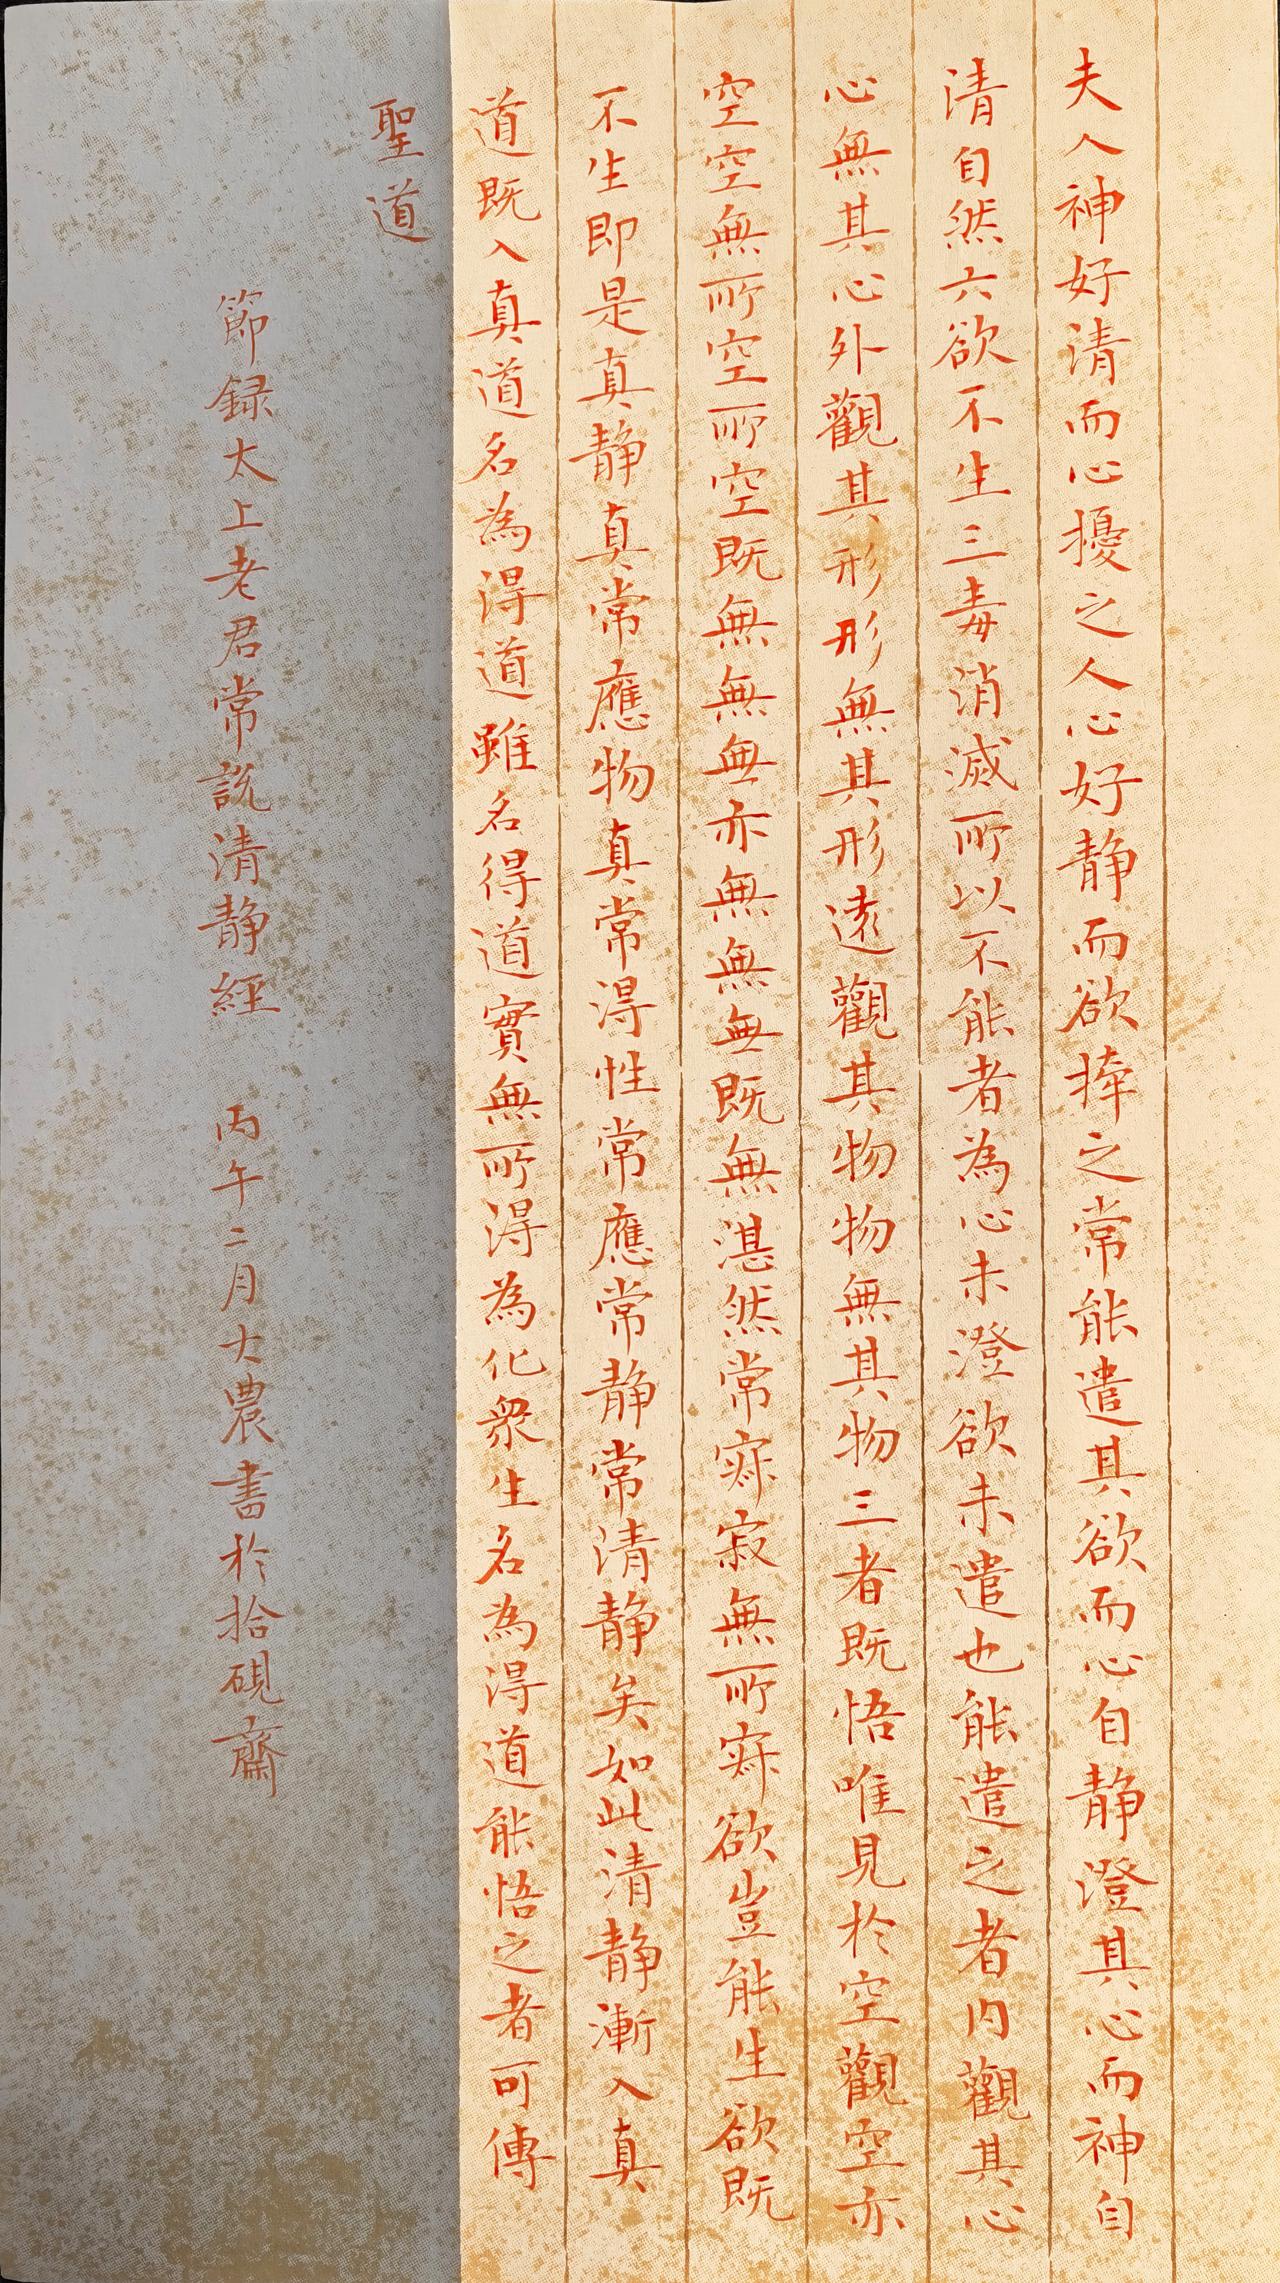 夫人神好清而心擾之人心好静而欲捧之常能遣其欲而心自静澄其心而神自
清自然六欲不生三毒消滅所以不能者為心未澄欲未遣也能遣之者内觀其心
心無其心外觀其形形無其形遠觀其物物無其物三者既悟唯見於空觀空亦
空空無所空所空既無無無亦無無無既無湛然常寂寂無所寂欲豈能生欲既
不生即是真静真常應物真常得性常應常静常清静矣如此清静漸入真
道既入真道名為得道雖名得道實無所得為化衆生名為得道能悟之者可傳
聖道
節録太上老君常説清静經 丙午二月大農書於拾硯齋